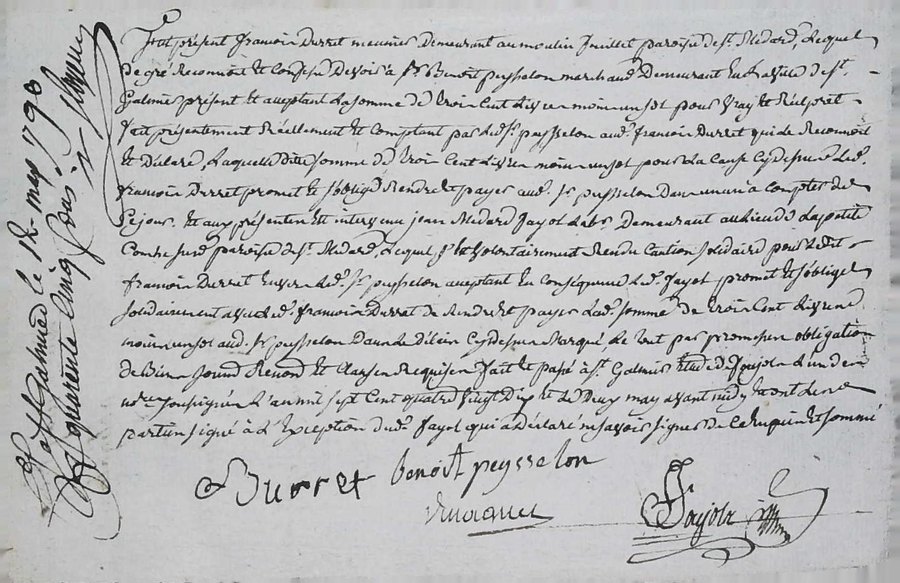 fut présent françois Durret meunier Demeurant au moulin paroisse de st. Medard, Lequel
De gré Reconnoit et Confesse Devoir à sr. Benoit peysselon marchand Demeurant en la ville de st.
Galmier présent et acceptant La somme de trois Cent Livres moins un sol pour vray et Réel prêt
fait présentement Réellement et Comptant par led. sr. peysselon aud. françois Durret qui de Reconnoit
et Déclare, Laquelle dite somme de trois Cent Livres moins un sol pour La Cause Cy Dessus Led.
françois Durret promet et s'oblige Rendre et payer aud. sr. peysselon Dans un an à Compter de
Ce jour. et aux présentes est intervenu jean Medard fayol Labr. Demeurant au Lieu de La petite
Combe paroisse de st. Medard, Lequel s'est volontairement Rendu Caution solidaire pour Ledit
françois Durret Envers Led. sr. peysselon acceptant En Conséquence Led. fayol promet et s'oblige
solidairement avec Led. françois Durret de Rendre et payer Lad. somme de trois Cent Livres
moins un sol aud. sr. peysselon Dans Le Délai Cy Dessus Marqué Le tout par promesse obligation
de Biens Renond et Clauses Requises fait et passé à st. Galmier Etude de Soujole L'un des
nores soussignés L'an mil sept Cent quatre vingt Dix et Le Deux may avant midy et ont Les
parties signé à L'Exception dud. fayol qui a Déclaré ne savoir signer de Ce Enquis et sommé
Durret benoit peysselon
a st Galmier le 12 may 1790
quarante cinq sous